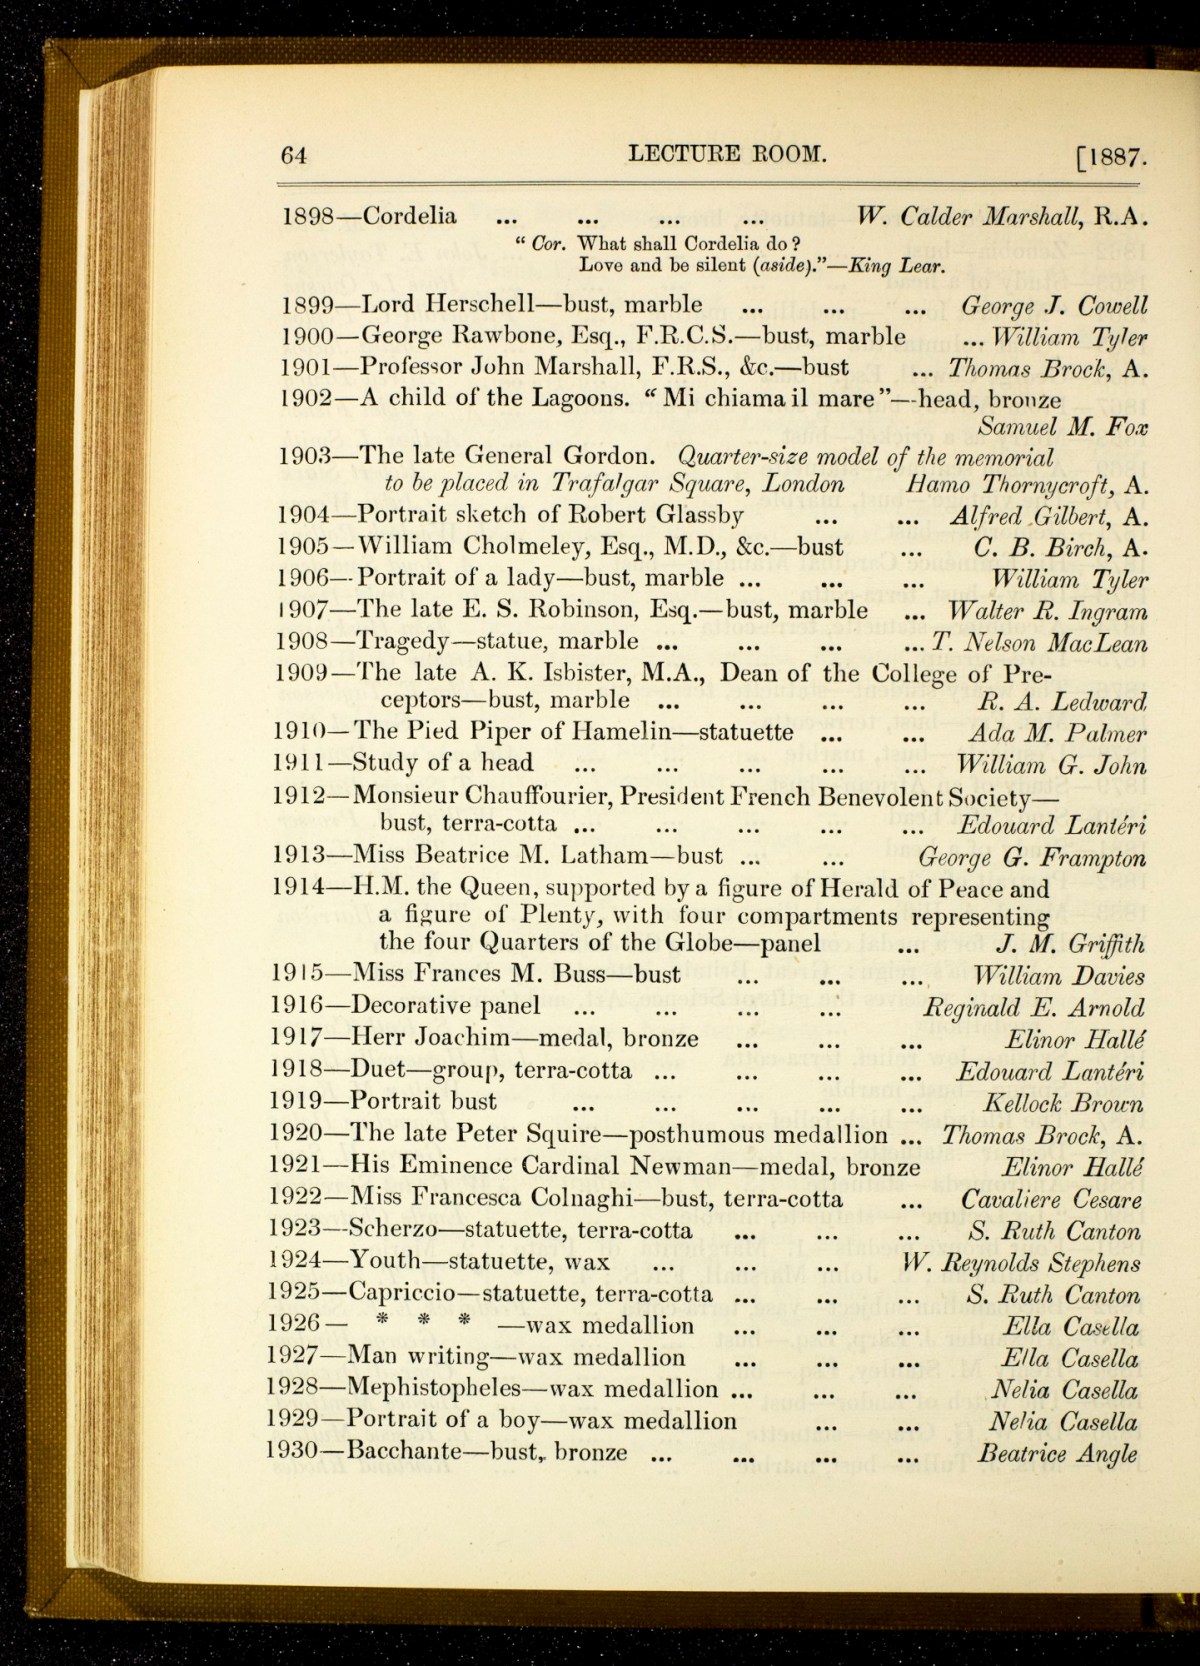 64 LECTURE ROOM. [1887.
1898—Cordelia ... ... ... ... W. Calder Marshall, R.A.
“ Cor. What shall Cordelia do ?
Love and be silent (aside).”—King Lear.
1899—Lord Herschell—bust, marble ... ... ... George J. Cowell
1900—George Rawbone, Esq., F.R.C.S.—bust, marble ... William Tyler
1901—Professor John Marshall, F.R.S., &c.—bust ... Thomas Brock, A.
1902—A child of the Lagoons. “ Mi chiama il mare ”—head, bronze
Samuel M. Fox
1903—The late General Gordon. Quarter-size model of the memorial
to be placed in Trafalgar Square, London Hamo Thornycroft, A.
1904—Portrait sketch of Robert Glassby ... ... Alfred Gilbert, A.
1905—William Cholmeley, Esq., M.D., &c.—bust ... C. B. Birch, A.
1906—Portrait of a lady—bust, marble ... ... ... William Tyler
1907—The late E. S. Robinson, Esq.—bust, marble ... Walter R. Ingram
1908—Tragedy—statue, marble ... ... ... ... T. Nelson MacLean
1909—The late A. K. Isbister, M.A., Dean of the College of Pre-
ceptors—bust, marble ... ... ... ... R. A. Ledward
1910—The Pied Piper of Hamelin—statuette ... ... Ada M. Palmer
1911—Study of a head ... ... ... ... ... William G. John
1912—Monsieur Chauffourier, President French Benevolent Society—
bust, terra-cotta ... ... ... ... ... Edouard Lantéri
1913—Miss Beatrice M. Latham—bust ... ... George G. Frampton
1914—H.M. the Queen, supported by a figure of Herald of Peace and
a figure of Plenty, with four compartments representing
the four Quarters of the Globe—panel ... J. M. Griffith
1915—Miss Frances M. Buss—bust ... ... ... William Davies
1916—Decorative panel ... ... ... ... Reginald E. Arnold
1917—Herr Joachim—medal, bronze ... ... ... Elinor Hallé
1918—Duet—group, terra-cotta ... ... ... ... Edouard Lantéri
1919—Portrait bust ... ... ... ... ... Kellock Brown
1920—The late Peter Squire—posthumous medallion ... Thomas Brock, A.
1921—His Eminence Cardinal Newman—medal, bronze Elinor Hallé
1922—Miss Francesca Colnaghi—bust, terra-cotta ... Cavaliere Cesare
1923—Scherzo—statuette, terra-cotta ... ... ... S. Ruth Canton
1924—Youth—statuette, wax ... ... ... W. Reynolds Stephens
1925—Capriccio—statuette, terra-cotta ... ... ... S. Ruth Canton
1926— * * * —wax medallion ... ... ... Ella Casella
1927—Man writing—wax medallion ... ... ... Ella Casella
1928—Mephistopheles—wax medallion ... ... ... Nelia Casella
1929—Portrait of a boy—wax medallion ... ... Nelia Casella
1930—Bacchante—bust, bronze ... ... ... ... Beatrice Angle